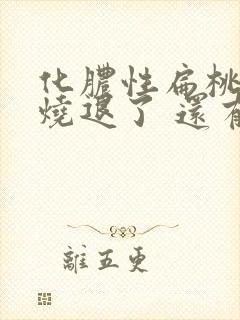 化膿性扁桃
燒退了 還有
離五更